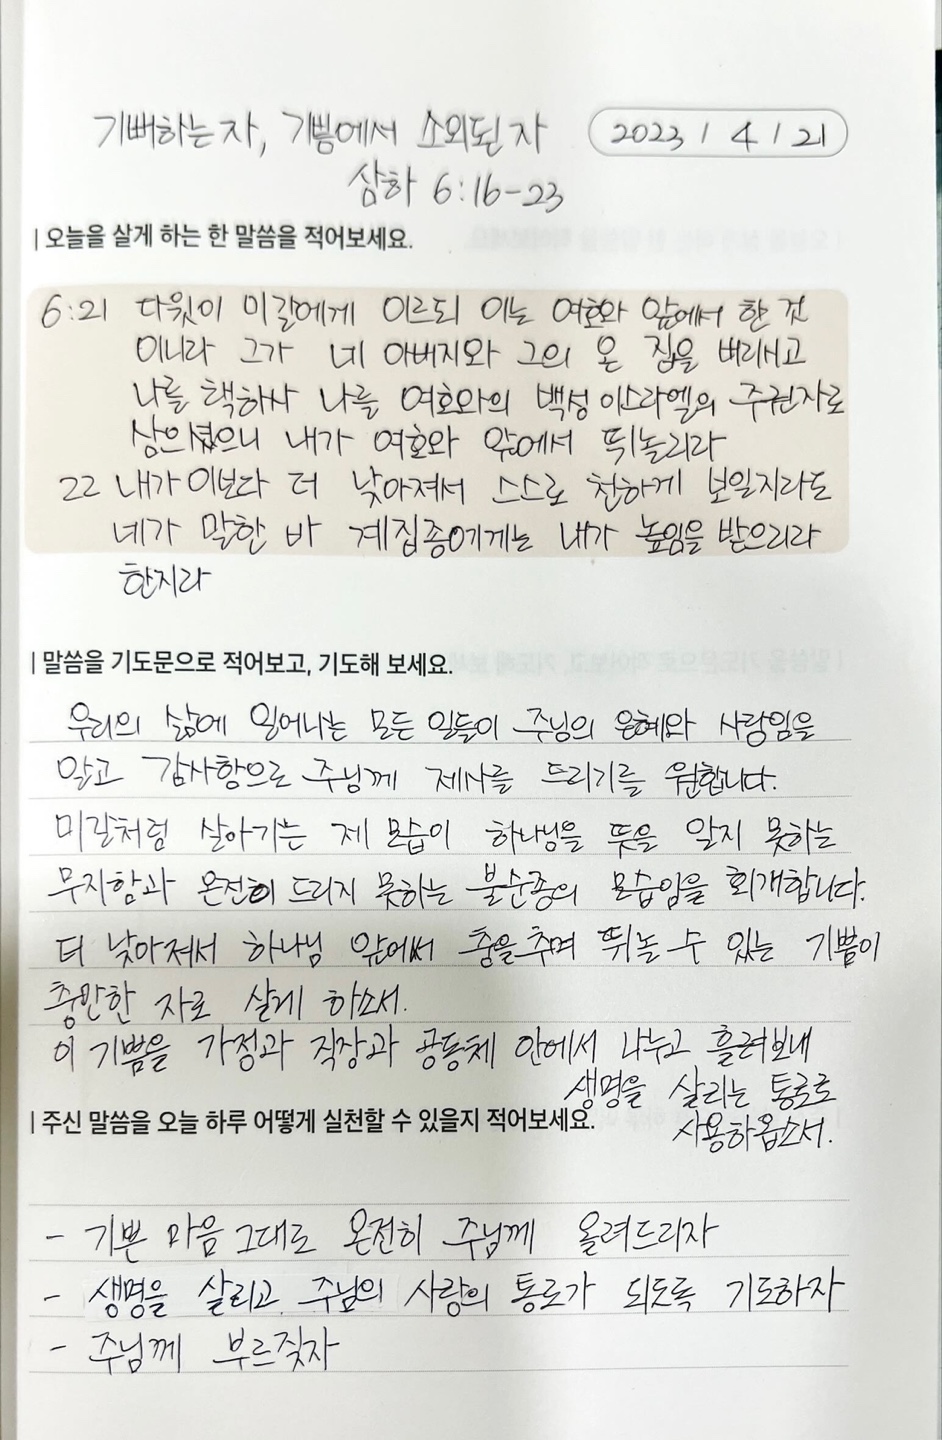 기뻐하는 자, 기쁨에서 소외된 자
2023 / 4 / 21
삼하 6:16-23
| 오늘을 살게 하는 한 말씀을 적어보세요.
6:21 다윗이 미갈에게 이르되 이는 여호와 앞에서 한 것
이니라 그가 네 아버지와 그의 온 집을 버리시고
나를 택하사 나를 여호와의 백성 이스라엘의 주권자로
삼으셨으니 내가 여호와 앞에서 뛰놀리라
22 내가 이보다 더 낮아져서 스스로 천하게 보일지라도
네가 말한 바 계집종에게는 내가 높임을 받으리라
한지라
| 말씀을 기도문으로 적어보고, 기도해 보세요.
우리의 삶에 일어나는 모든 일들이 주님의 은혜와 사랑임을
알고 감사함으로 주님께 제사를 드리기를 원합니다.
미갈처럼 살아가는 제 모습이 하나님을 뜻을 알지 못하는
무지함과 온전히 드리지 못하는 불순종의 모습임을 회개합니다.
더 낮아져서 하나님 앞에서 춤을 추며 뛰놀 수 있는 기쁨이
충만한 자로 살게 하소서.
이 기쁨을 가정과 직장과 공동체 안에서 나누고 흘려보내
생명을 살리는 통로로
사용하옵소서.
| 주신 말씀을 오늘 하루 어떻게 실천할 수 있을지 적어보세요.
- 기쁜 마음 그대로 온전히 주님께 올려드리자
- 생명을 살리고 주님의 사랑의 통로가 되도록 기도하자
- 주님께 부르짖자